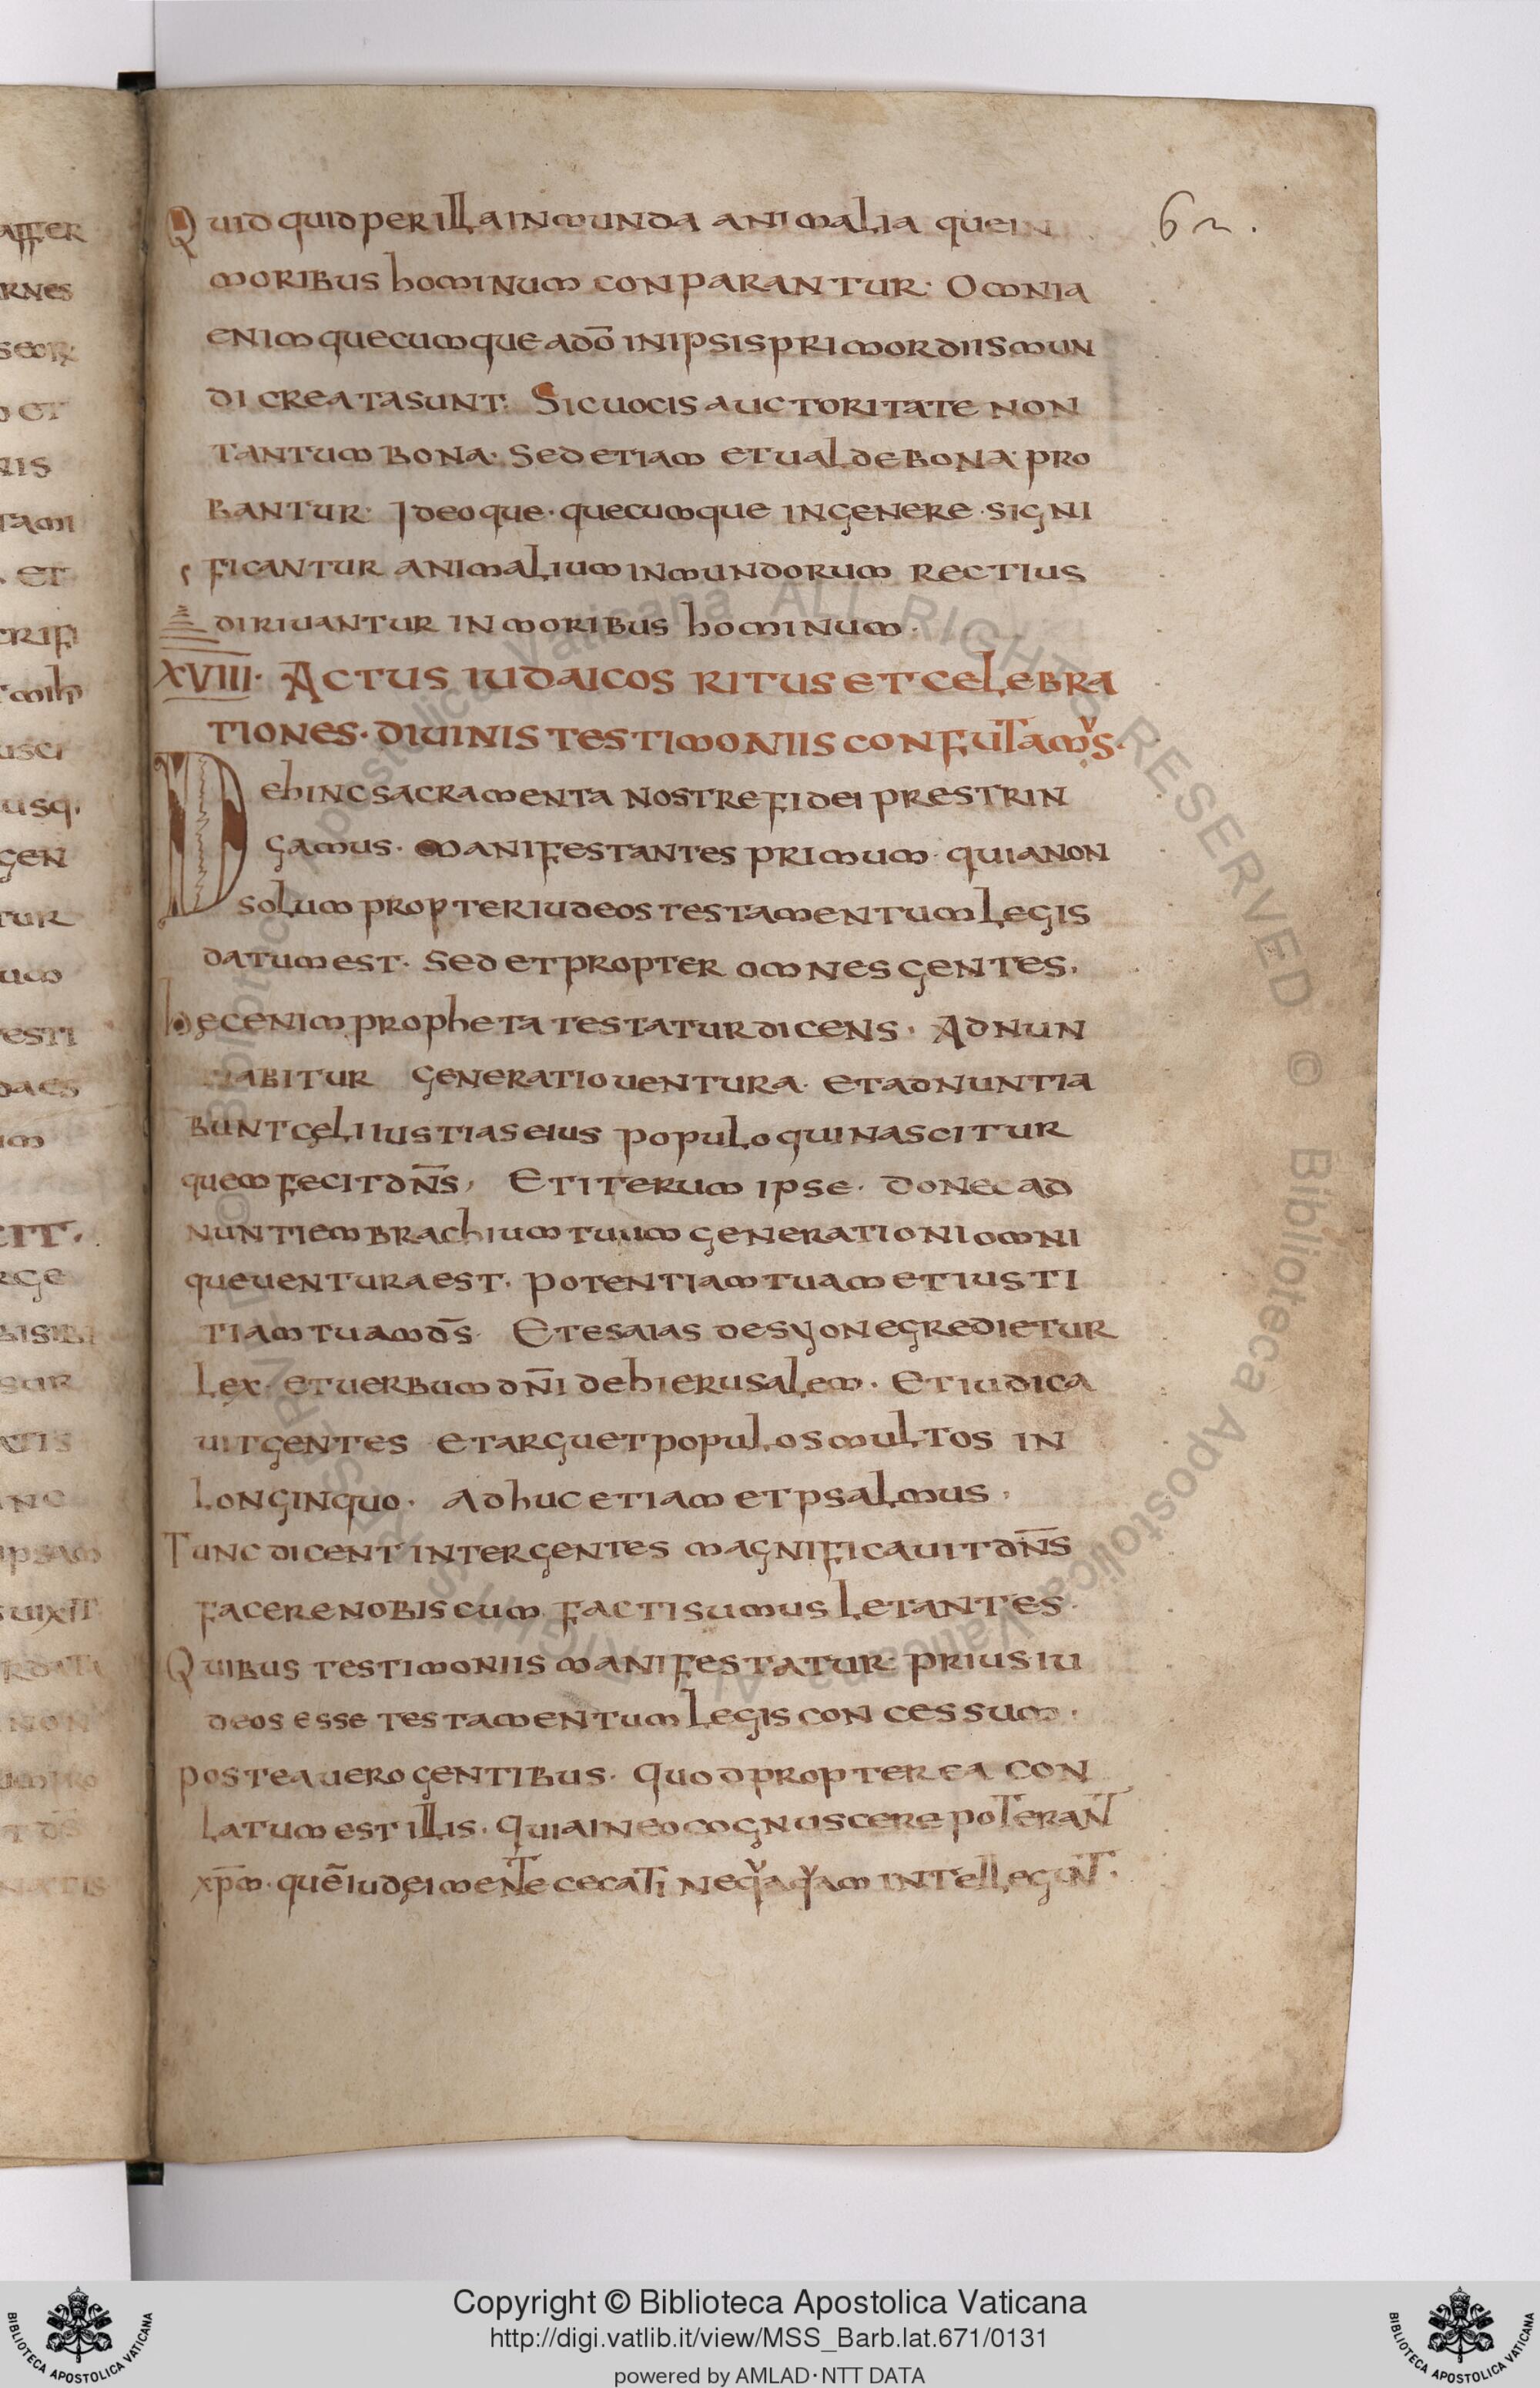 Quid quid per illa inmunda animalia que in
moribus hominum conparantur. Omnia
enim quecumque a do̅ in ipsis primordiis mun
di creata sunt. Sic uocis auctoritate non
tantum bona. Sed etiam et ualde bona pro
bantur. Ideoque. quecumque in genere signi
ficantur animalium inmundorum rectius
diriuantur in moribus hominum.
XVIII. Actus iudaicos ritus et celebra
tiones. diuinis testimoniis confutamus.
Dehinc sacramenta nostre fidei prestrin
gamus. manifestantes primum quia non
solum propter iudeos testamentum legis
datum est. Sed et propter omnes gentes,
hec enim propheta testatur dicens. Adnun
tiabitur generatio uentura. et adnuntia
bunt cęli iustias eius populo qui nascitur
quem fecit dn̅s, Et iterum ipse. donec ad
nuntiem brachium tuum generationi omni
que uentura est. potentiam tuam et iusti
tiam tuam ds̅. Et esaias de syon egredietur
lex. et uerbum dn̅i de hierusalem. Et iudica
uit gentes et arguet populos multos in
longinquo. Adhuc etiam et psalmus.
Tunc dicent inter gentes magnificauit dn̅s
facere nobiscum facti sumus letantes.
Quibus testimoniis manifestatur. prius iu
deos esse testamentum legis concessum.
postea uero gentibus. Quod propterea con
latum est illis. quia in eo cognuscere poterant
xp̅m. quē iudei mente cecati nequaquam intellegunt.
6 2.
Copyright © Biblioteca Apostolica Vaticana
http://digi.vatlib.it/view/MSS_Barb.lat.671/0131
powered by AMLAD·NTT DATA
BIBLIOTECA APOSTOLICA VATICANA
BIBLIOTECA APOSTOLICA VATICANA